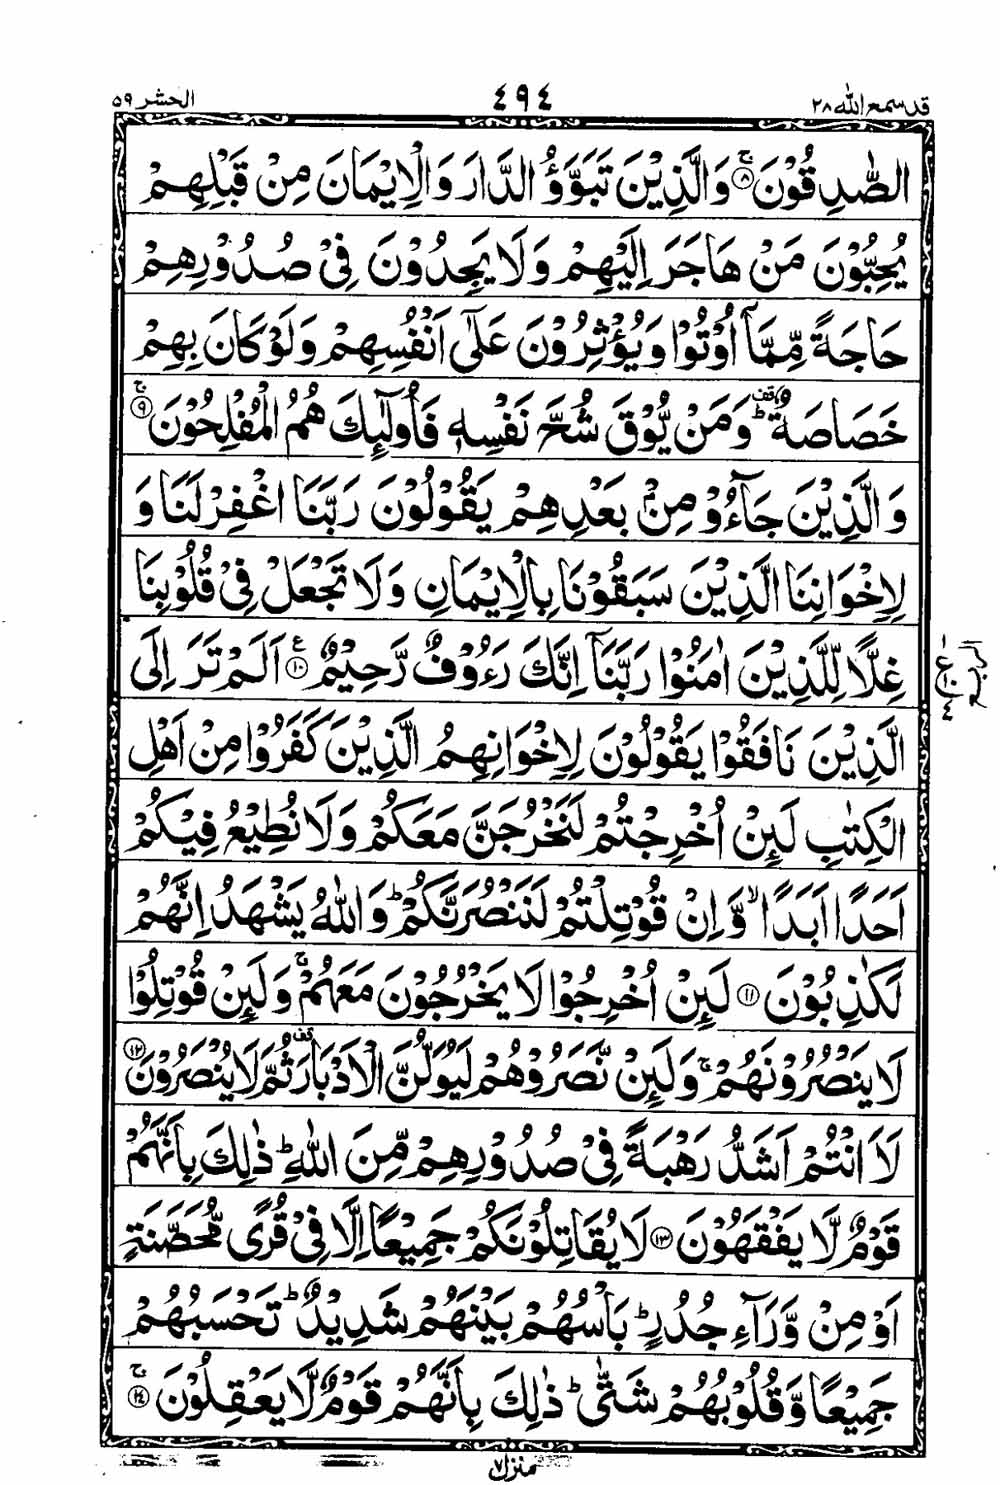 قد سمع الله ٢٨
٤٩٤
الحشر ٥٩
الصّٰدِقُوْنَ ۚ﴿٨﴾ وَالَّذِيْنَ تَبَوَّؤُ الدَّارَ وَالْاِيْمَانَ مِنْ قَبْلِهِمْ
يُحِبُّوْنَ مَنْ هَاجَرَ اِلَيْهِمْ وَلَا يَجِدُوْنَ فِيْ صُدُوْرِهِمْ
حَاجَةً مِّمَّاۤ اُوْتُوْا وَيُؤْثِرُوْنَ عَلٰۤى اَنْفُسِهِمْ وَلَوْ كَانَ بِهِمْ
خَصَاصَةٌ ؕ قف وَمَنْ يُّوْقَ شُحَّ نَفْسِهٖ فَاُولٰٓئِكَ هُمُ الْمُفْلِحُوْنَ ۚ﴿٩﴾
وَالَّذِيْنَ جَآءُوْ مِنْۢ بَعْدِهِمْ يَقُوْلُوْنَ رَبَّنَا اغْفِرْ لَنَا وَ
لِاِخْوَانِنَا الَّذِيْنَ سَبَقُوْنَا بِالْاِيْمَانِ وَلَا تَجْعَلْ فِيْ قُلُوْبِنَا
غِلًّا لِّلَّذِيْنَ اٰمَنُوْا رَبَّنَاۤ اِنَّكَ رَءُوْفٌ رَّحِيْمٌ ﴿١٠﴾ ع اَلَمْ تَرَ اِلَى
الَّذِيْنَ نَافَقُوْا يَقُوْلُوْنَ لِاِخْوَانِهِمُ الَّذِيْنَ كَفَرُوْا مِنْ اَهْلِ
الْكِتٰبِ لَئِنْ اُخْرِجْتُمْ لَنَخْرُجَنَّ مَعَكُمْ وَلَا نُطِيْعُ فِيْكُمْ
اَحَدًا اَبَدًا ۙ وَّاِنْ قُوْتِلْتُمْ لَنَنْصُرَنَّكُمْ ؕ وَاللّٰهُ يَشْهَدُ اِنَّهُمْ
لَكٰذِبُوْنَ ﴿١١﴾ لَئِنْ اُخْرِجُوْا لَا يَخْرُجُوْنَ مَعَهُمْ ۚ وَلَئِنْ قُوْتِلُوْا
لَا يَنْصُرُوْنَهُمْ ۚ وَلَئِنْ نَّصَرُوْهُمْ لَيُوَلُّنَّ الْاَدْبَارَ قف ثُمَّ لَا يُنْصَرُوْنَ ﴿١٢﴾
لَاَ انْتُمْ اَشَدُّ رَهْبَةً فِيْ صُدُوْرِهِمْ مِّنَ اللّٰهِ ؕ ذٰلِكَ بِاَنَّهُمْ
قَوْمٌ لَّا يَفْقَهُوْنَ ﴿١٣﴾ لَا يُقَاتِلُوْنَكُمْ جَمِيْعًا اِلَّا فِيْ قُرًى مُّحَصَّنَةٍ
اَوْ مِنْ وَّرَآءِ جُدُرٍ ؕ بَاْسُهُمْ بَيْنَهُمْ شَدِيْدٌ ؕ تَحْسَبُهُمْ
جَمِيْعًا وَّقُلُوْبُهُمْ شَتّٰى ؕ ذٰلِكَ بِاَنَّهُمْ قَوْمٌ لَّا يَعْقِلُوْنَ ۚ﴿١٤﴾
منزل ٧